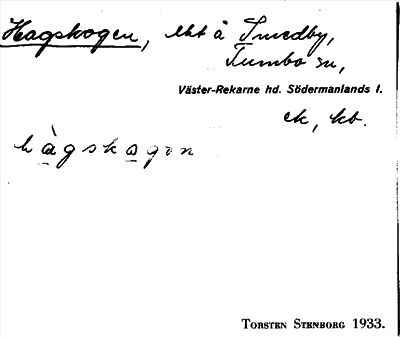 Hagskogen, lht å Smedby,
Tumbo sn,
Väster-Rekarne hd. Södermanlands l.
ek, kb.
hàgskagon
TORSTEN STENBORG 1933.